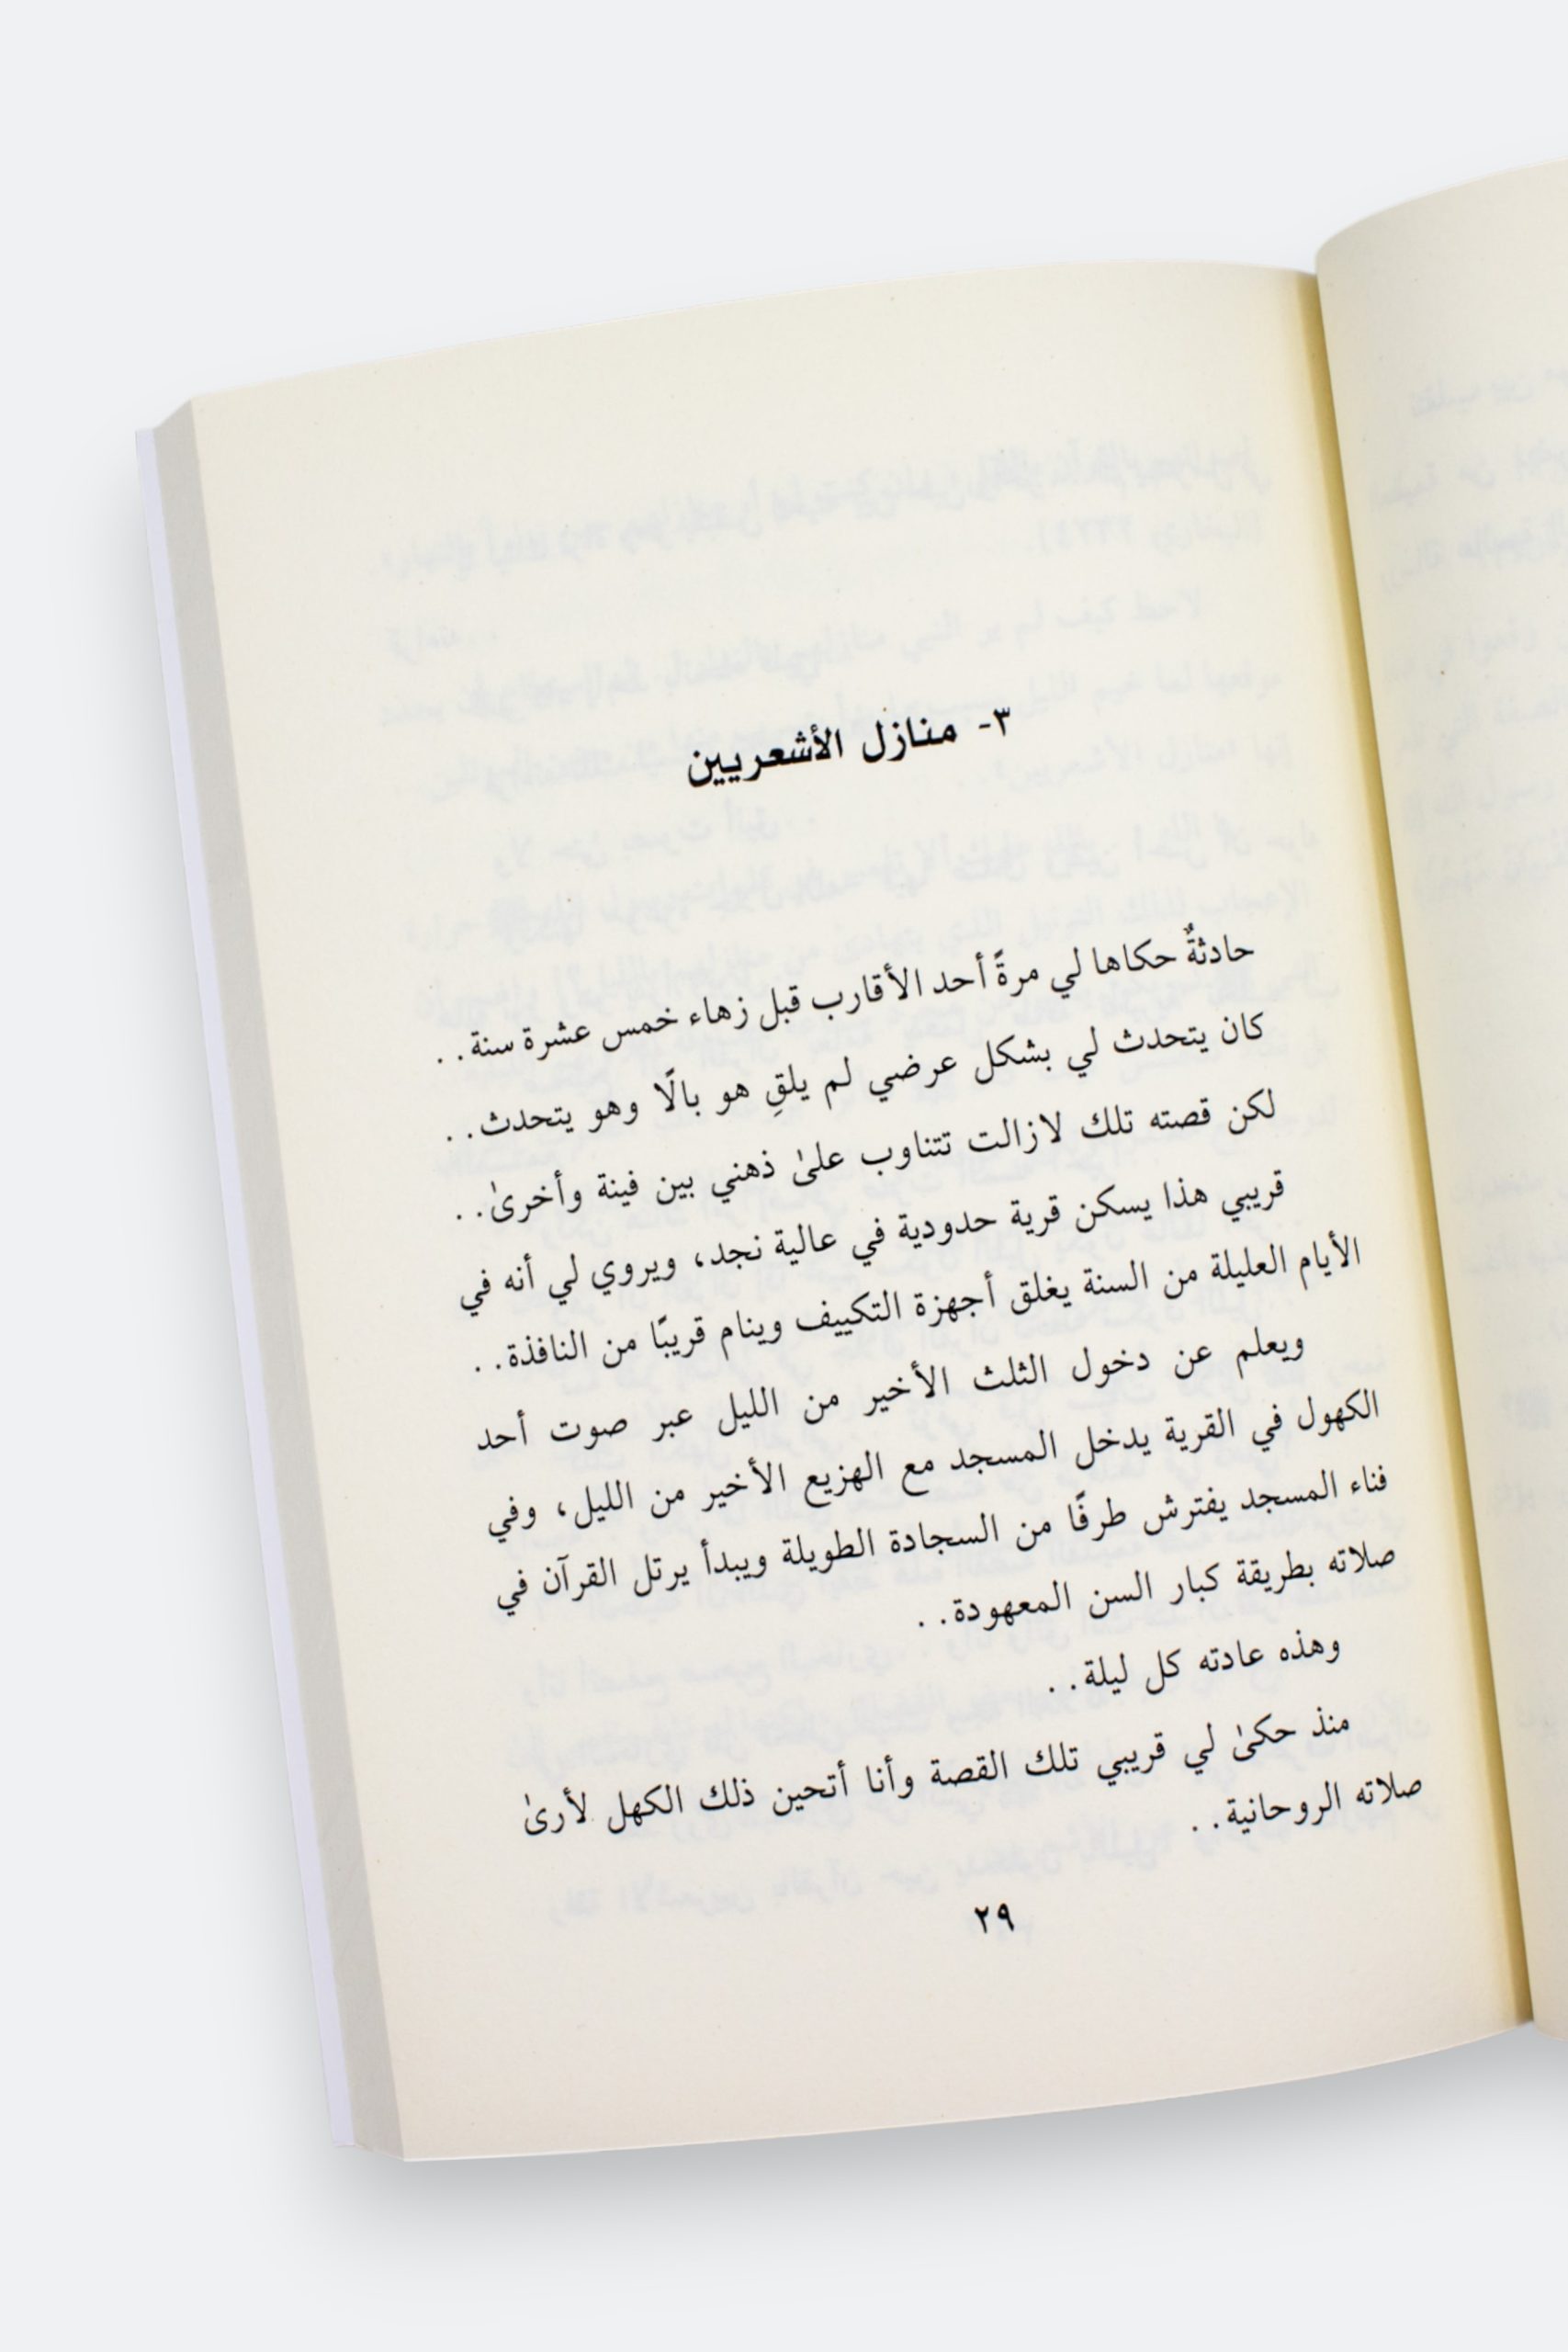 ٣- منازل الأشعريين
حادثةٌ حكاها لي مرةً أحد الأقارب قبل زهاء خمس عشرة سنة..
كان يتحدث لي بشكل عرضي لم يلقِ هو بالًا وهو يتحدث..
لكن قصته تلك لازالت تتناوب علىٰ ذهني بين فينة وأخرىٰ..
قريبي هذا يسكن قرية حدودية في عالية نجد، ويروي لي أنه في
الأيام العليلة من السنة يغلق أجهزة التكييف وينام قريبًا من النافذة..
ويعلم عن دخول الثلث الأخير من الليل عبر صوت أحد
الكهول في القرية يدخل المسجد مع الهزيع الأخير من الليل، وفي
فناء المسجد يفترش طرفًا من السجادة الطويلة ويبدأ يرتل القرآن في
صلاته بطريقة كبار السن المعهودة..
وهذه عادته كل ليلة..
منذ حكىٰ لي قريبي تلك القصة وأنا أتحين ذلك الكهل لأرىٰ
صلاته الروحانية..
٢٩